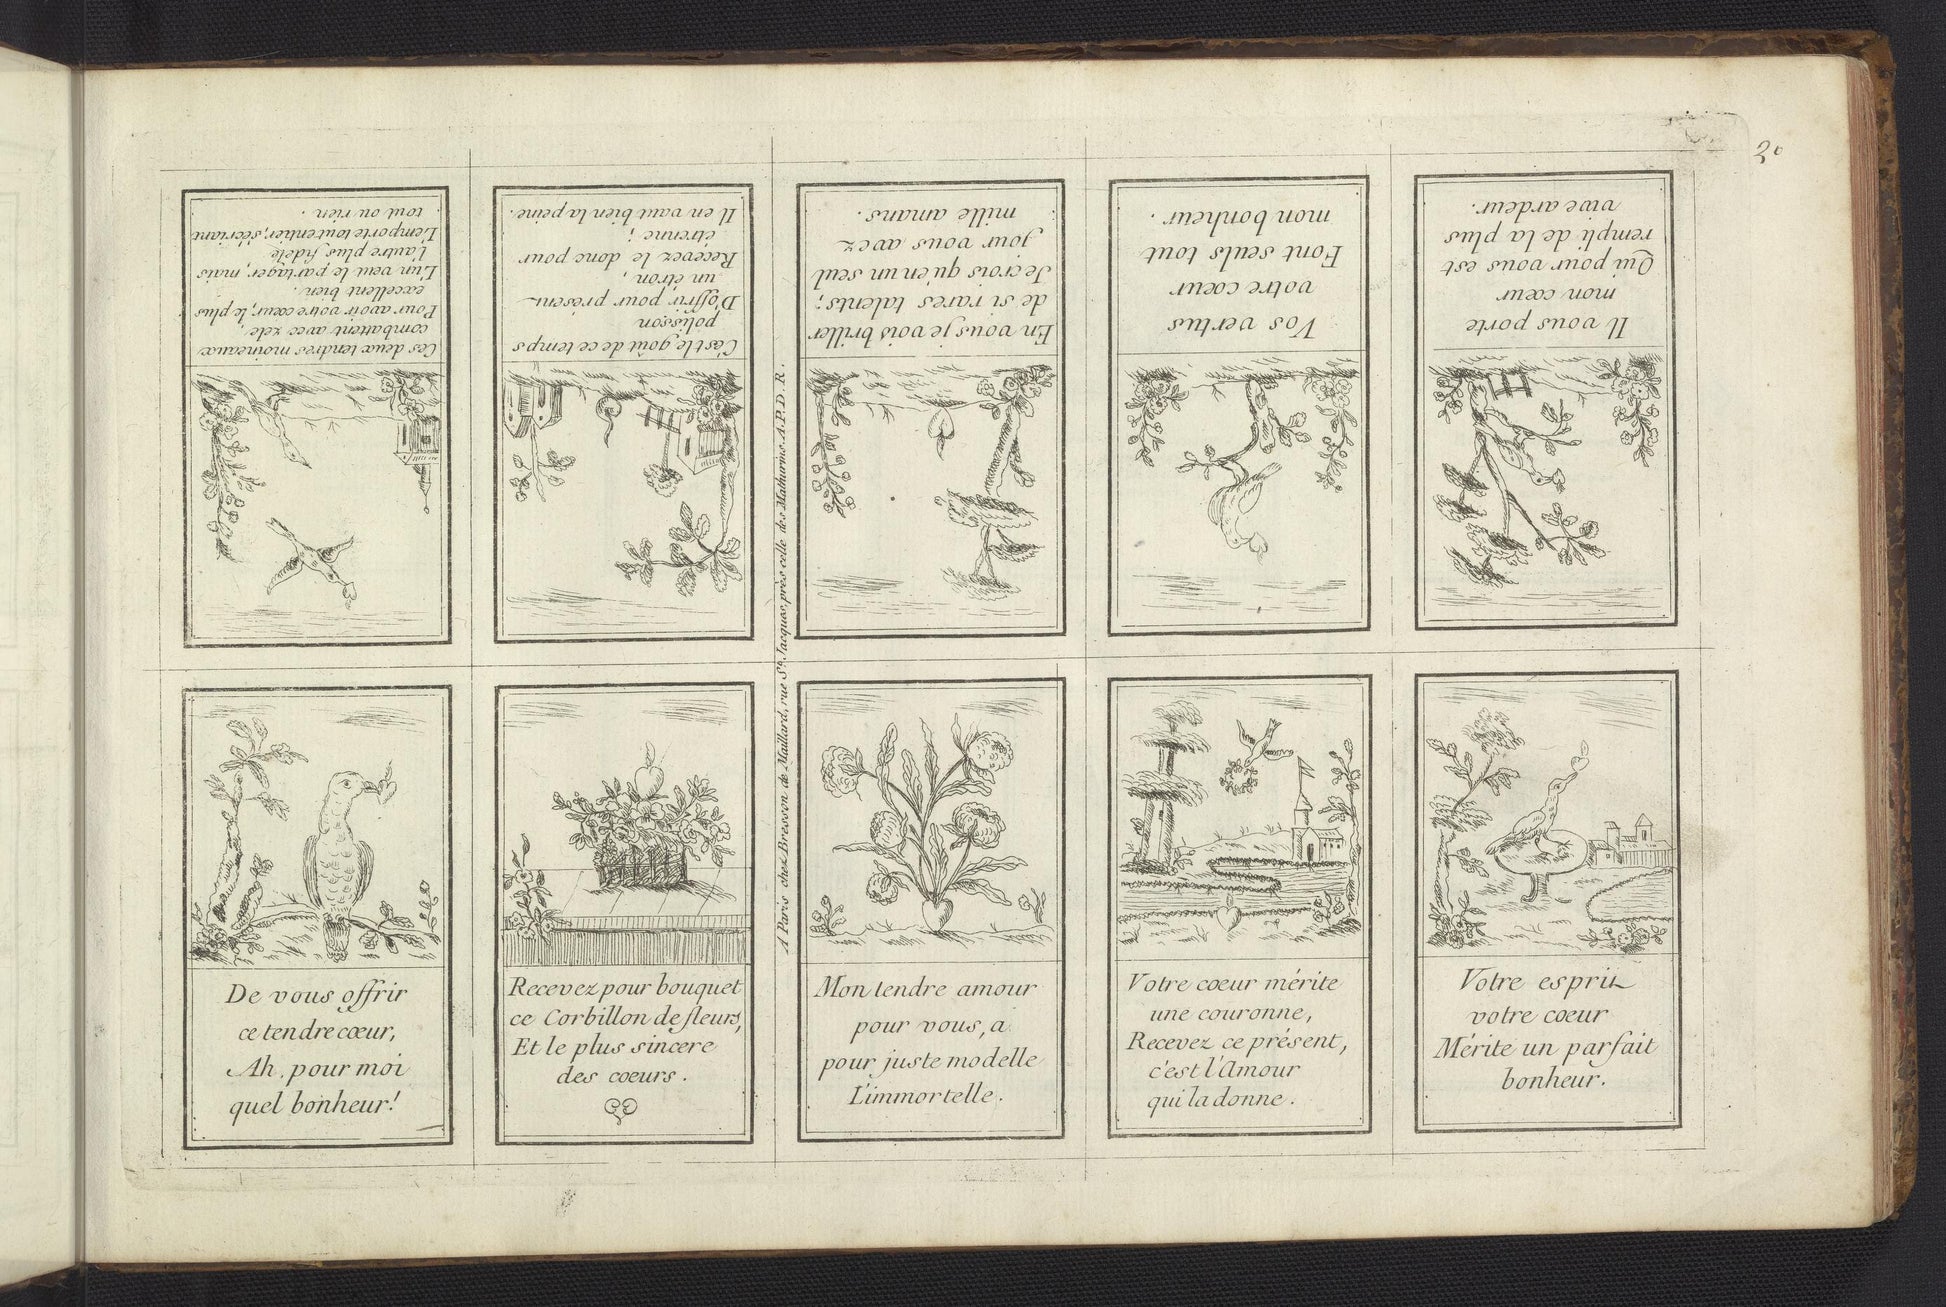 30
Ces deux tendres moineaux
combattent avec zele,
Pour avoir votre cœur, le plus
excellent bien.
L'un veut le partager, mais
L'autre plus fidele
L'emporte tout entier, s'écriant
tout ou rien.
C'est le goût de ce temps
polisson
D'offrir pour présent
un étron,
Recevez le donc pour
étrenne;
Il en vaut bien la peine.
En vous je vois briller
de si rares talents;
Je crois qu'en un seul
jour vous avez
mille amans.
Vos vertus
votre cœur
Font seuls tout
mon bonheur.
Il vous porte
mon cœur
Qui pour vous est
rempli de la plus
vive ardeur.
A Paris chez Bresson de Maillard, rue St. Jacques, près celle des Mathurins. A. P. D. R.
De vous offrir
ce tendre cœur,
Ah, pour moi
quel bonheur!
Recevez pour bouquet
ce Corbillon de fleurs,
Et le plus sincere
des coeurs.
Mon tendre amour
pour vous, a
pour juste modelle
L'immortelle.
Votre coeur mérite
une couronne,
Recevez ce présent,
c'est l'Amour
qui la donne.
Votre esprit
votre coeur
Mérite un parfait
bonheur.